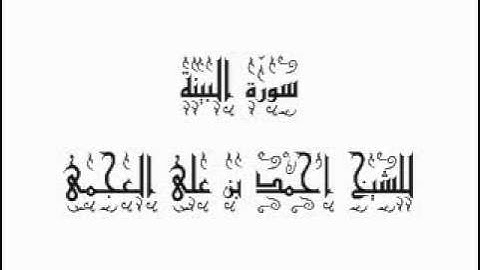 سورة البينة
للشيخ احمد بن على العجمى